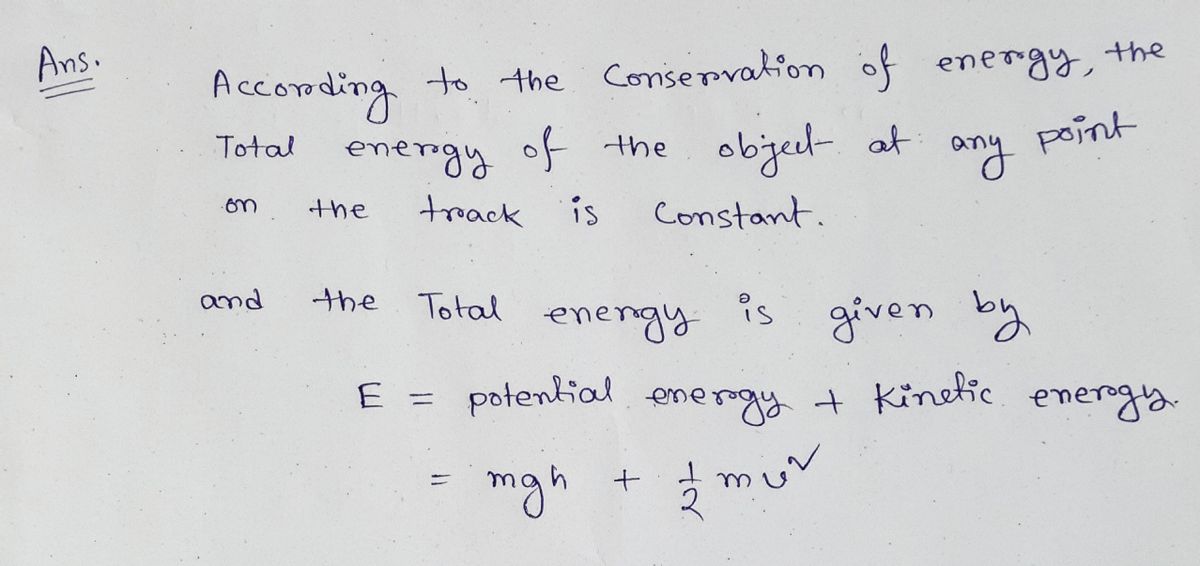 Ans.
According to the Conservation of energy, the
Total energy of the object at any point
on the track is Constant.
and the Total energy is given by
E = potential energy + Kinetic energy.
= mgh + 1/2 mv²